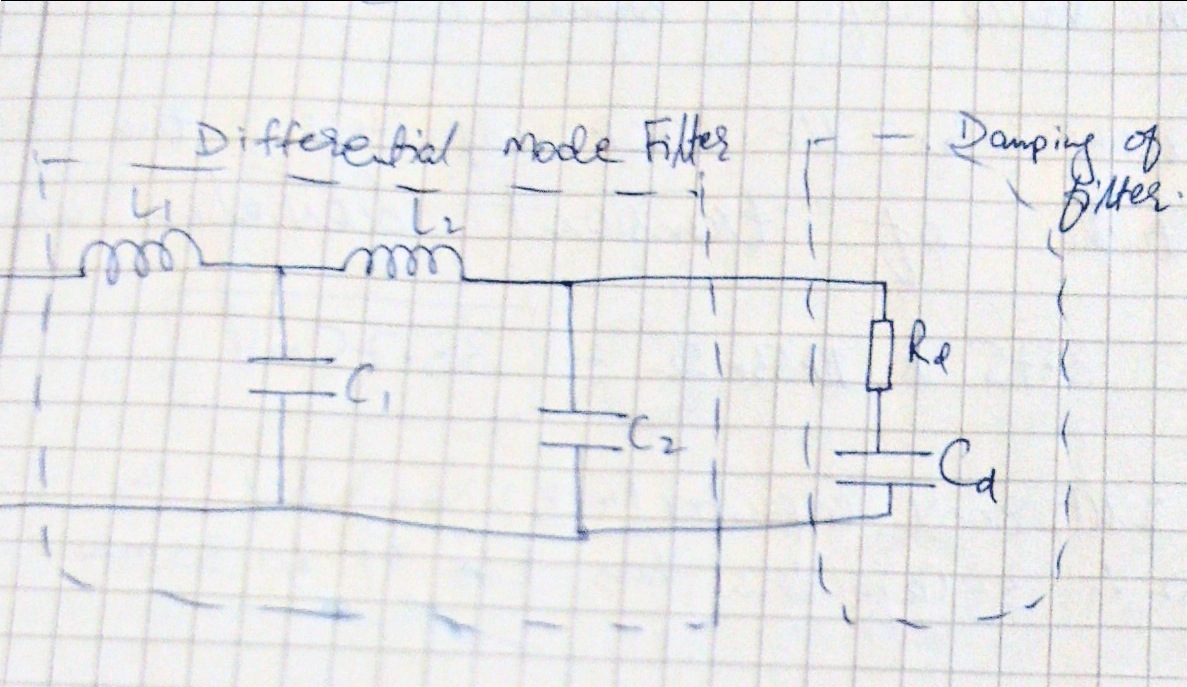 Differential mode Filter
Damping of
filter.
L1
L2
Rd
C1
C2
Cd